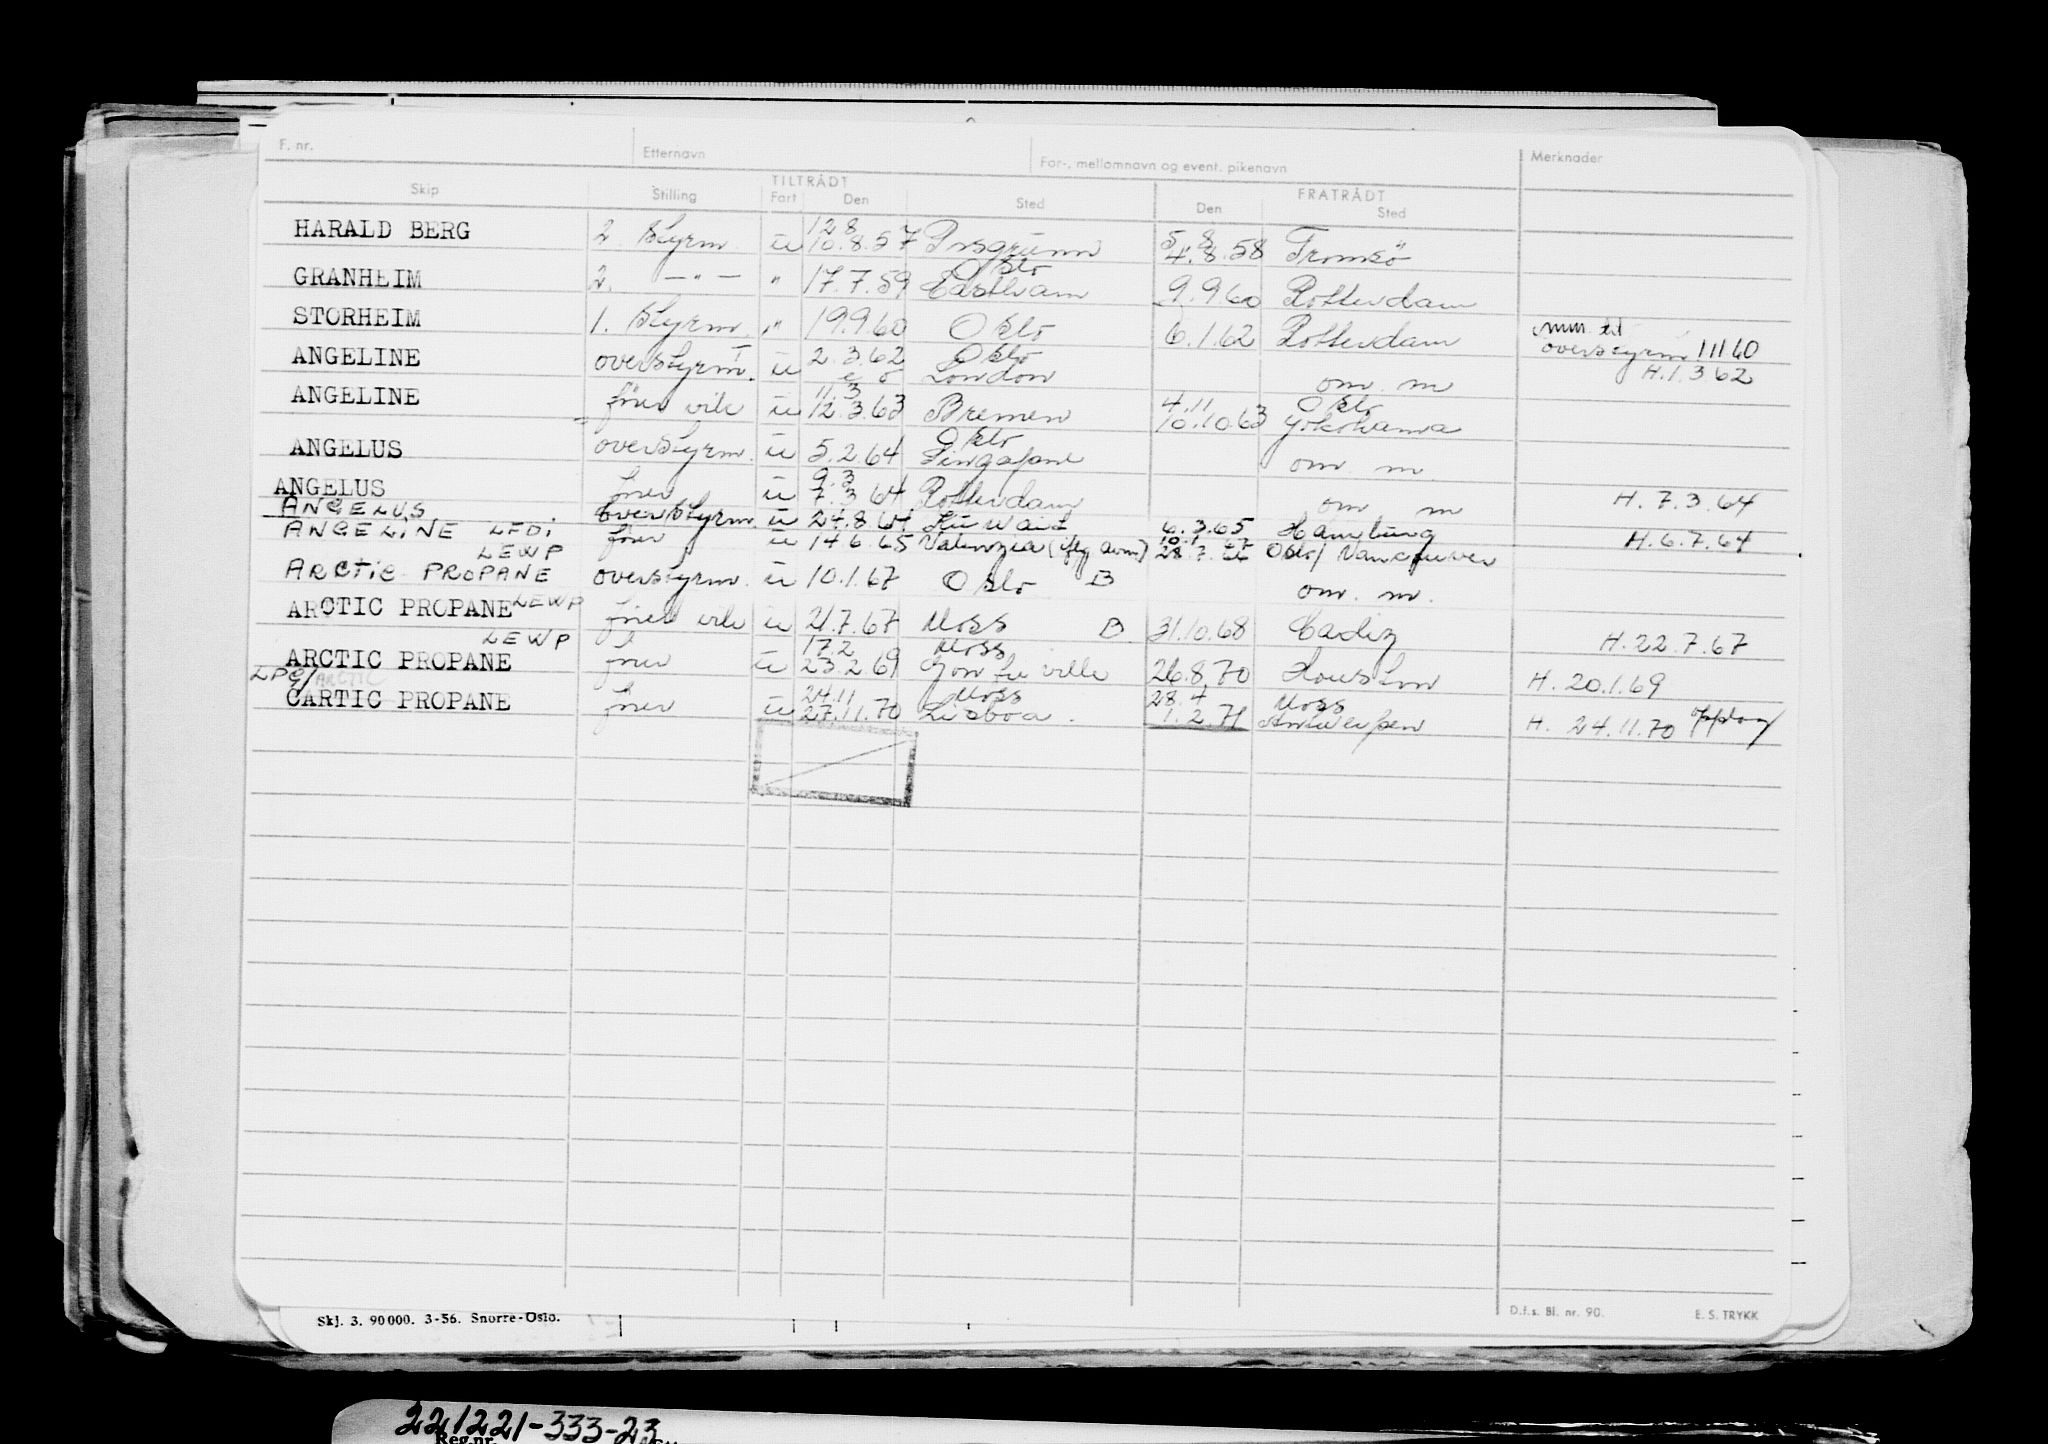 F. nr. Etternavn For-, mellomnavn og event. pikenavn Merknader
TILTRÅDT FRATRÅDT
Skip Stilling Fart Den Sted Den Sted
12 8 5 8
HARALD BERG 2. Styrm. u 10.8.57 Porsgrunn 4.8.58 Tromsö
Oslo
GRANHEIM 2. —"— " 17.7.59 Eastham 9.9.60 Rotterdam
STORHEIM 1. Styrm. " 19.9.60 Oslo 6.1.62 Rotterdam overstyrm 1 11 60
Oslo
ANGELINE overstyrm. u 2.3.62 London om. m H. 1.3 62
11.3 4.11 Oslo
ANGELINE förer vik u 12.3.63 Bremen 10.10.63 Yokohama
Oslo
ANGELUS overstyrm. u 5.2.64 Singapore om. m.
9.3
ANGELUS förer u 7.3.64 Rotterdam om m H. 7.3.64
ANGELUS overstyrm. u 24.8.64 Kuwait 6.3.65 Hamburg
10.1.67
ANGELINE LFDI förer u 14.6.65 Valencia 28.7.66 Oslo/ Vancouver H. 6.7.64
LEWP
ARCTIC PROPANE overstyrm. u 10.1.67 Oslo B om. m.
LEWP
ARCTIC PROPANE förer vik u 21.7.67 Moss B 31.10.68 Cadiz H. 22.7.67
LEWP 17.2 Moss
ARCTIC PROPANE förer u 23.2.69 26.8.70 Houston H. 20.1.69
LPG/ ARCTIC 24.11 Moss 28.4 Moss
CARTIC PROPANE förer u 27.11.70 Lisboa. 1.2.71 Antwerpen H. 24.11.70 opplag
Skj. 3. 90000. 3-56. Snorre-Oslo.
D.f.s. Bl. nr. 90. E. S. TRYKK
221221-333-23
Reg.nr.